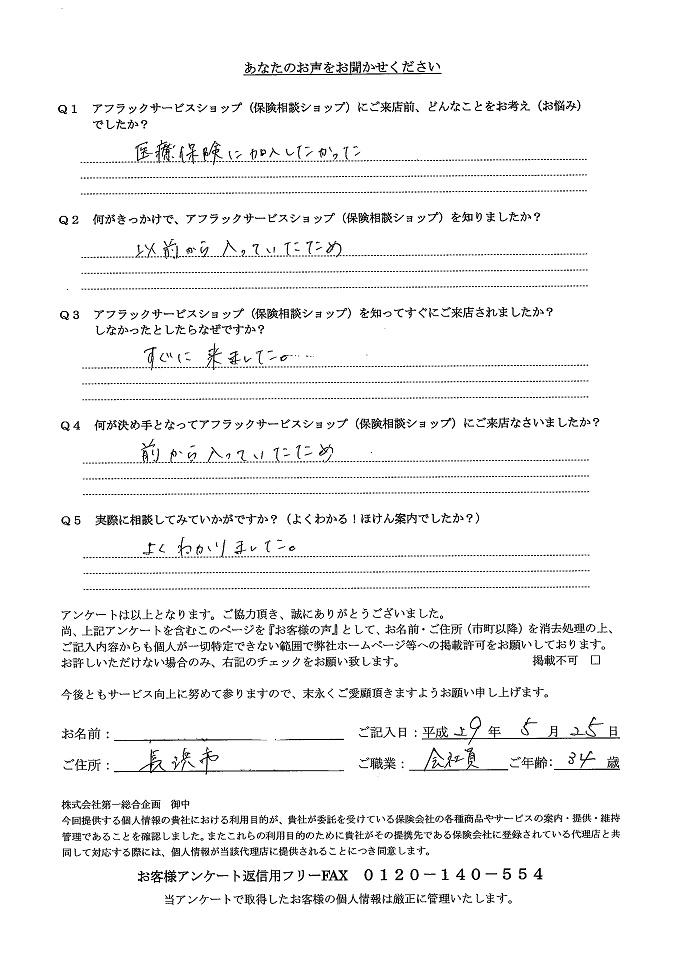 あなたのお声をお聞かせください
Q1 アフラックサービスショップ（保険相談ショップ）にご来店前、どんなことをお考え（お悩み）
でしたか？
医療保険に加入したかった
Q2 何がきっかけで、アフラックサービスショップ（保険相談ショップ）を知りましたか？
以前から入っていたため
Q3 アフラックサービスショップ（保険相談ショップ）を知ってすぐにご来店されましたか？
しなかったとしたらなぜですか？
すぐに来ました。
Q4 何が決め手となってアフラックサービスショップ（保険相談ショップ）にご来店なさいましたか？
前から入っていたため
Q5 実際に相談してみていかがですか？（よくわかる！ほけん案内でしたか？）
よくわかりました。
アンケートは以上となります。ご協力頂き、誠にありがとうございました。
尚、上記アンケートを含むこのページを『お客様の声』として、お名前・ご住所（市町以降）を消去処理の上、
ご記入内容からも個人が一切特定できない範囲で弊社ホームページ等への掲載許可をお願いしております。
お許しいただけない場合のみ、右記のチェックをお願い致します。 掲載不可 □
今後ともサービス向上に努めて参りますので、末永くご愛顧頂きますようお願い申し上げます。
お名前： ご記入日：平成 29 年 5 月 25 日
ご住所： 長浜市 ご職業： 会社員 ご年齢： 34 歳
株式会社第一総合企画 御中
今回提供する個人情報の貴社における利用目的が、貴社が委託を受けている保険会社の各種商品やサービスの案内・提供・維持
管理であることを確認しました。またこれらの利用目的のために貴社がその提携先である保険会社に登録されている代理店と共
同して対応する際には、個人情報が当該代理店に提供されることにつき同意します。
お客様アンケート返信用フリーFAX 0120－140－554
当アンケートで取得したお客様の個人情報は厳正に管理いたします。